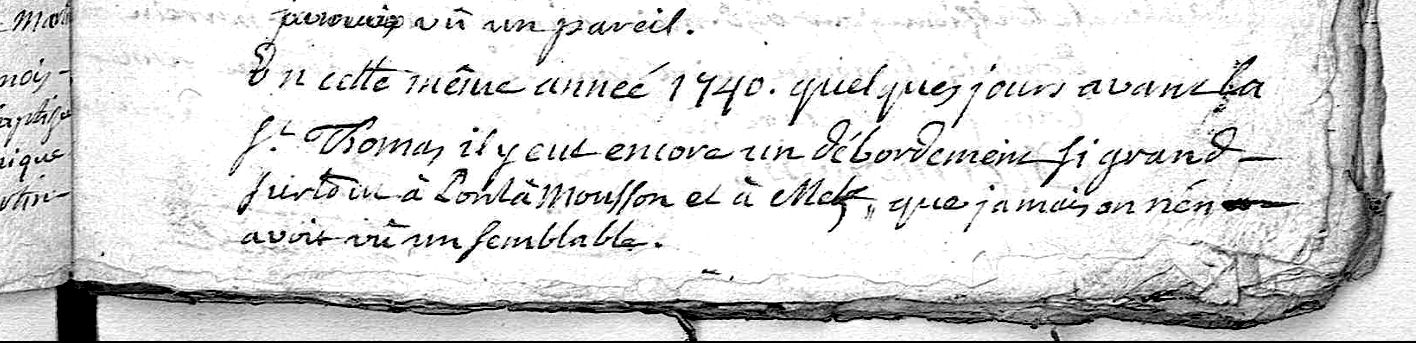 mar
jamais vû un pareil.
nois-
En cette même anneé 1740. quelques jours avant la
baptise
St. Thomas il y eut encore un débordement si grand
nique
surtout à Pont à Mousson et à Metz, que jamais on n'en
rtin-
avoit vû un semblable.